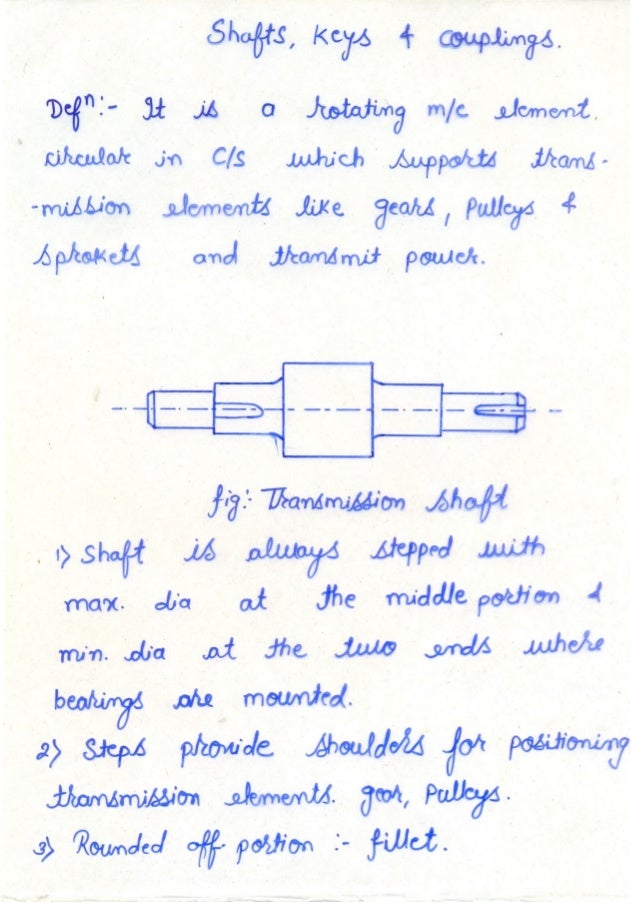 Shafts, Keys & couplings.
Defⁿ:- It is a rotating m/c element.
circular in C/S which supports trans-
-mission elements like gears, Pulleys &
Sprokets and transmit power.
fig:- Transmission Shaft
1) Shaft is always stepped with
max. dia at the middle portion &
min. dia at the two ends where
bearings are mounted.
2) Steps provide shoulders for positioning
transmission elements. gear, Pulleys.
3) Rounded off portion :- fillet.